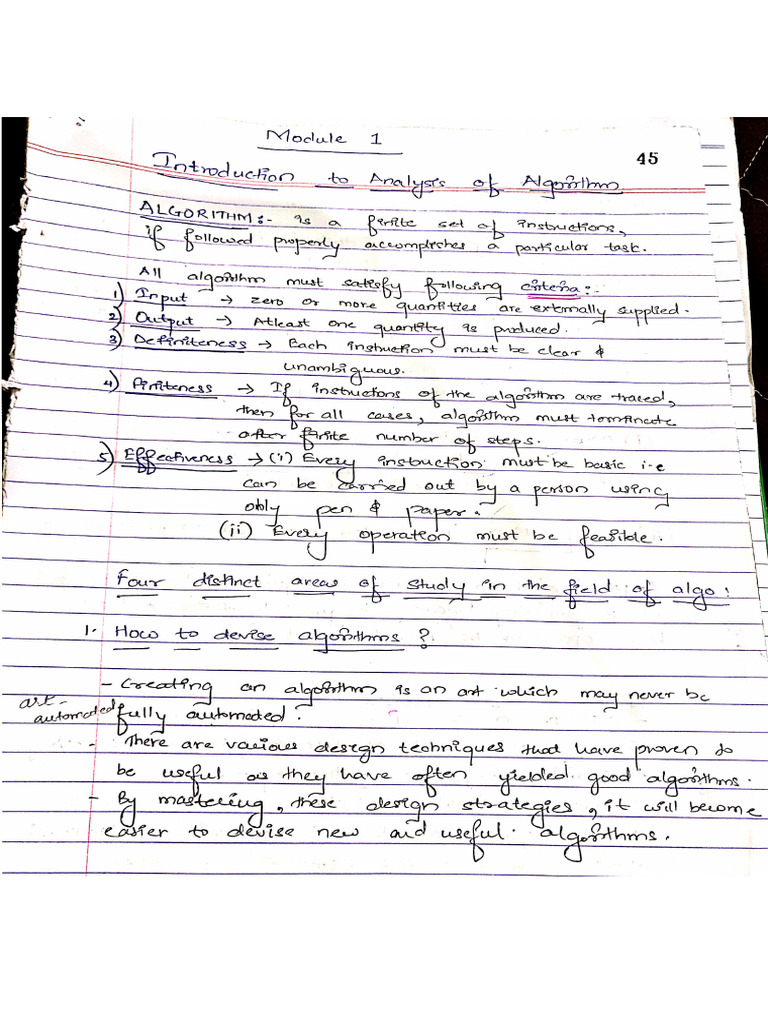 Module 1
45
Introduction to Analysis of Algorithm
ALGORITHM:- is a finite set of instructions,
if followed properly accomplishes a particular task.
All algorithm must satisfy following criteria:-
1) Input → zero or more quantities are externally supplied.
2) Output → Atleast one quantity is produced.
3) Definiteness → Each instruction must be clear &
unambiguous.
4) Finiteness → If instructions of the algorithm are traced,
then for all cases, algorithm must terminate
after finite number of steps.
5) Effectiveness → (i) Every instruction must be basic i.e
can be carried out by a person using
only pen & paper.
(ii) Every operation must be feasible.
Four distinct areas of study in the field of algo:
1. How to devise algorithms?
- Creating an algorithm is an art which may never be
art-
automated
fully automated.
- There are various design techniques that have proven to
be useful as they have often yielded good algorithms.
- By mastering, these design strategies, it will become
easier to devise new and useful algorithms.